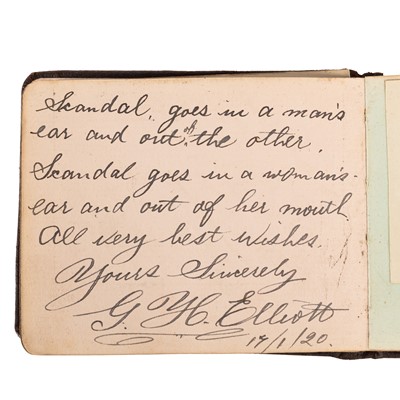 Scandal, goes in a man's
ear and out of the other.
Scandal goes in a woman's
ear and out of her mouth
All very best wishes.
Yours Sincerely
G. H. Elliott
17/1/20.